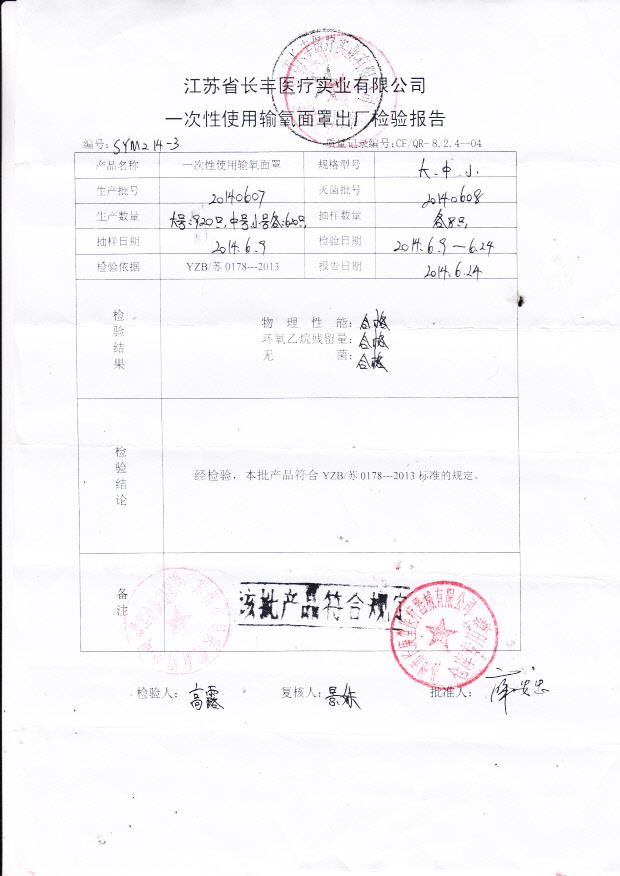 江苏省长丰医疗实业有限公司
一次性使用输氧面罩出厂检验报告
编号: SYM214-3 质量记录编号:CF/QR-8.2.4--04
产品名称 一次性使用输氧面罩 规格型号 大.中.小
生产批号 20140607 灭菌批号 20140608
生产数量 大号:920只,中号,小号各:620只, 抽样数量 各8只,
抽样日期 2014.6.9 检验日期 2014.6.9—6.24
检验依据 YZB/苏 0178---2013 报告日期 2014.6.24
检验结果
物理性能: 合格
环氧乙烷残留量: 合格
无菌: 合格
检验结论
经检验，本批产品符合 YZB/苏 0178---2013 标准的规定。
备注
该批产品符合规定
检验人: 高露 复核人: 批准人: